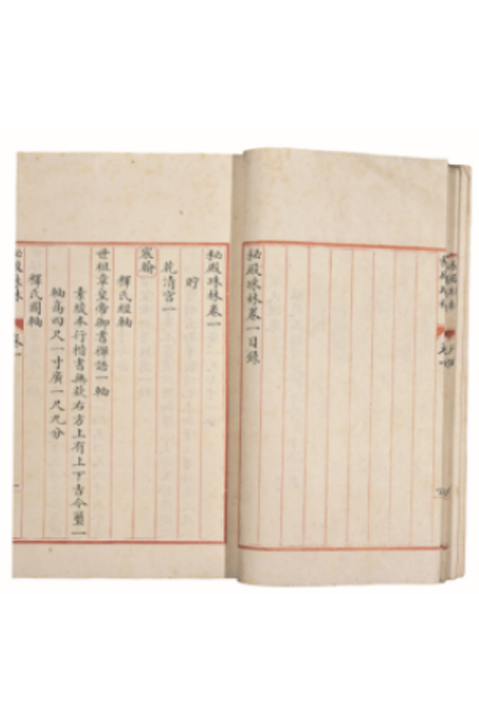 秘殿珠林卷一目錄
秘殿珠林卷一
貯
乾清宮一
宸翰
釋氏經軸
世祖章皇帝御書禪語一軸
素綾本行楷書無款右方上有上下吉今璽一
軸高四尺一寸廣一尺九分
釋氏圖軸
秘殿珠林 卷一